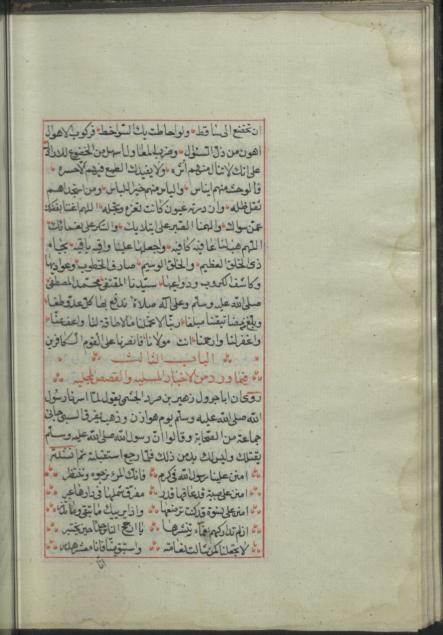 ان تخضع الى ساقط ولو احاطت بك السواخط فركوب الاهوال
اهون من ذل السئوال وضرب المعاول اسهل من الخضوع
على انك لا تنال منهم اثره ولا يفيدك الطمع فيهم الا حسره
فالوحشة منهم ايناس والياس منهم خير لباس ومن استجداهم
ثقل ظله وان درت عيون كانت لغيره اللهم اغننا بفضلك
عمن سواك والهمنا الصبر على ابتلائك والشكر على نعمائك
اللهم هب لنا عافية كافية واجعلها علينا واقية باقية بجاه
ذي الخلق العظيم والخلق الوسيم صارف الخطوب وعواديها
وكاشف الكروب ودواعيها سيدنا المقتفى محمد المصطفى
صلى الله عليه وسلم وعلى آله صلاة ندفع بها كل عدو طغا
ويبلغ بها ربنا لا تحملنا ما لا طاقة لنا واعف عنا
واغفر لنا وارحمنا انت مولانا فانصرنا على القوم الكافرين
الباب الثالث
فيما ورد من الاخبار المسلية والقصص
روي ان ابا جرول زهير بن صرد الجشمي يقول لما اسرنا رسول
الله صلى الله عليه وسلم يوم هوازن وذهب يفرق السبي جاني
جماعة من الصحابة وقالوا ان رسول الله صلى الله عليه وسلم
يقتلك وليس لك بد من ذلك فلما رجع استقبلته ثم انشدته
امنن علينا رسول الله في كرم فانك المرء نرجوه وننتظر
امنن على بيضة قد عاقها قدر مفرق شملها في دهرها غير
امنن على نسوة قد كنت ترضعها واذ يريبك ما تأتي وما تذر
ان لم تداركهم نعماء تنشرها يا ارجح الناس حلما حين يختبر
لا تجعلنا كمن شالت نعامته واستبق منا فانا معشر زهر
انا